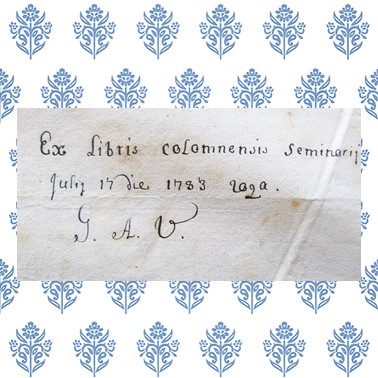 Ex Libris colomnensis seminarij
Julij 17 die 1783 года.
J. A. V.